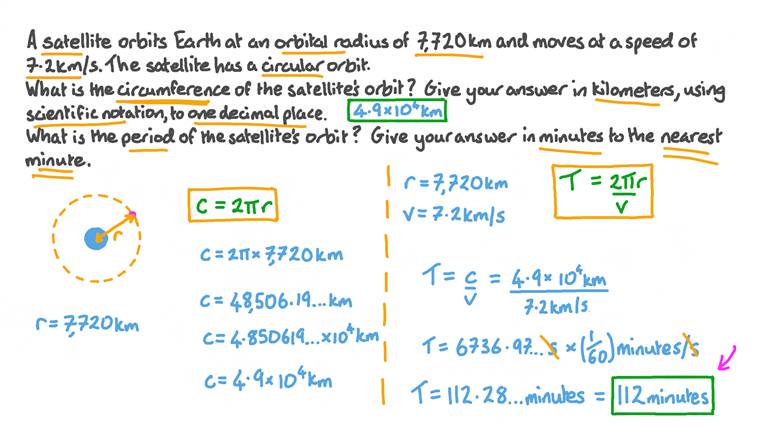 A satellite orbits Earth at an orbital radius of 7,720km and moves at a speed of
7.2km/s. The satellite has a circular orbit.
What is the circumference of the satellite's orbit? Give your answer in kilometers, using
scientific notation, to one decimal place. 4.9×10⁴km
What is the period of the satellite's orbit? Give your answer in minutes to the nearest
minute.
r
r=7,720km
c = 2πr
c = 2π×7,720km
c = 48,506.19...km
c = 4.850619...×10⁴km
c = 4.9×10⁴km
r=7,720km
v=7.2km/s
T = 2πr/v
T = c/v = 4.9×10⁴km/7.2km/s
T = 6736.97...s ×(1/60)minutes/s
T = 112.28...minutes = 112minutes